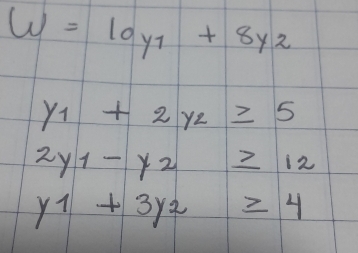 W = 10y1 + 8y2
y1 + 2y2 ≥ 5
2y1 - y2 ≥ 12
y1 + 3y2 ≥ 4